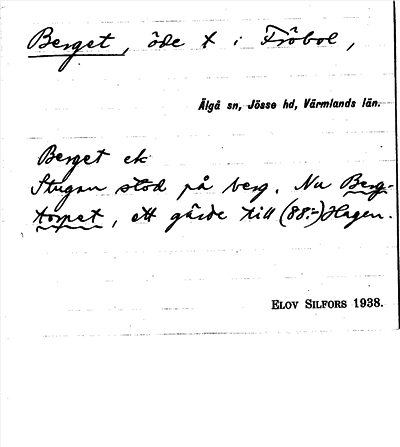 Berget, öde t i Fröbol,
Älgå sn, Jösse hd, Värmlands län.
Berget ek
Stugan stod på berg. Nu Berg-
torpet, ett gärde till (88:-) Hagen.
ELOV SILFORS 1938.